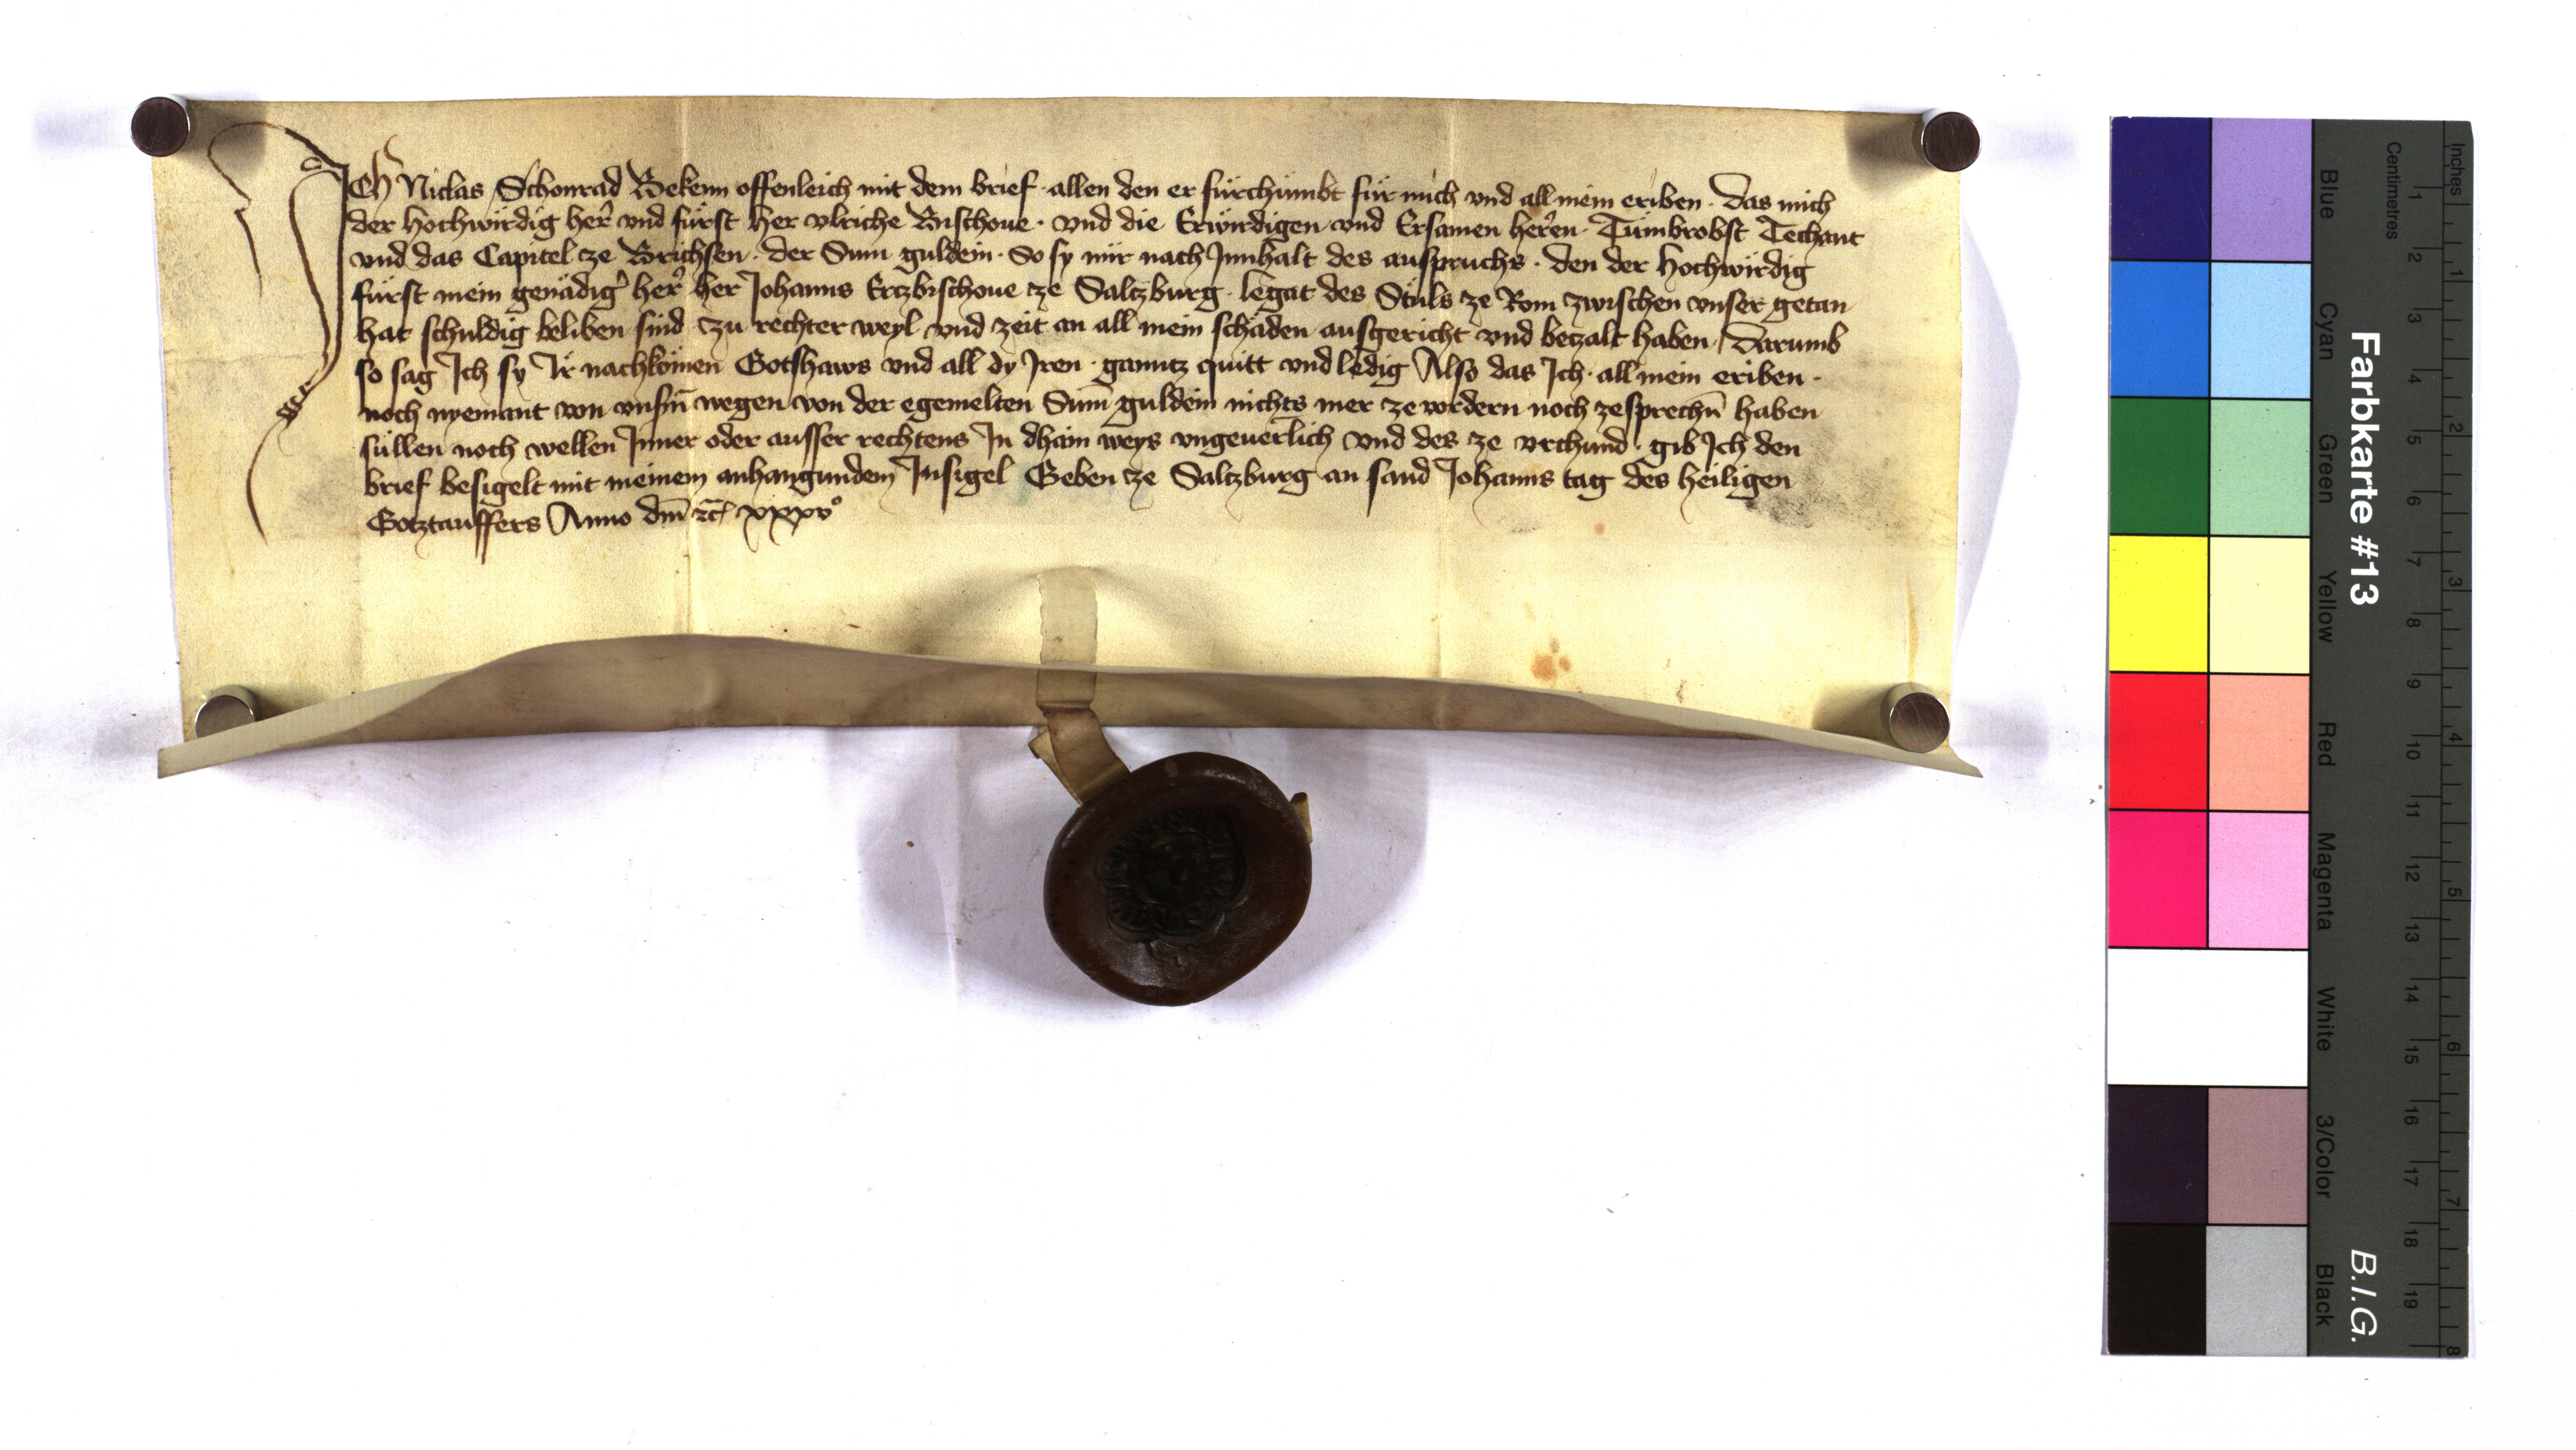 ICh Niclas Schonrad Bekenn offenleich mit dem brief · allen den er fürchümbt für mich vnd all mein eriben · Das mich
der hochwirdig her̃ vnd fürst her vlriche Bischoue · vnd die Erwirdigen vnd Ersamen her̃en · Tümbrobst Techant
vnd das Capitel ze Brichsen · der Sum guldein · So sy mir nach Innhalt des ausspruchs · den der hochwirdig
fürst mein genädig̃ her̃ her Johanns Ertzbischoue ze Saltzburg · legat des Stuls ze Rom zwischen vnser getan
hat schuldig beliben sind zu rechter weyl vnd zeit an all mein schäden ausgericht vnd betzalt haben / Darumb
so sag Ich sy Ir nachkömen Gotshaws vnd all dy Iren · ganntz quitt vnd ledig Also das Ich · all mein eriben ·
noch nyemant von vnsñ wegen von der egemelten Sum̄ guldein nichts mer ze vordern noch zesprechñ haben
süllen noch wellen Inner oder ausser rechtens In dhain weys vngeuerlich vnd des ze vrchund · gib Ich den
brief besigelt mit meinem anhangundem Insigel Geben ze Saltzburg an sand Johanns tag des heiligen
Gotztauffers Anno dm̄ ⁊c̄ xxxvº
Farbkarte #13
B.I.G.
Blue Cyan Green Yellow Red Magenta White 3/Color Black
Centimetres
1 2 3 4 5 6 7 8 9 10 11 12 13 14 15 16 17 18 19
Inches
1 2 3 4 5 6 7 8